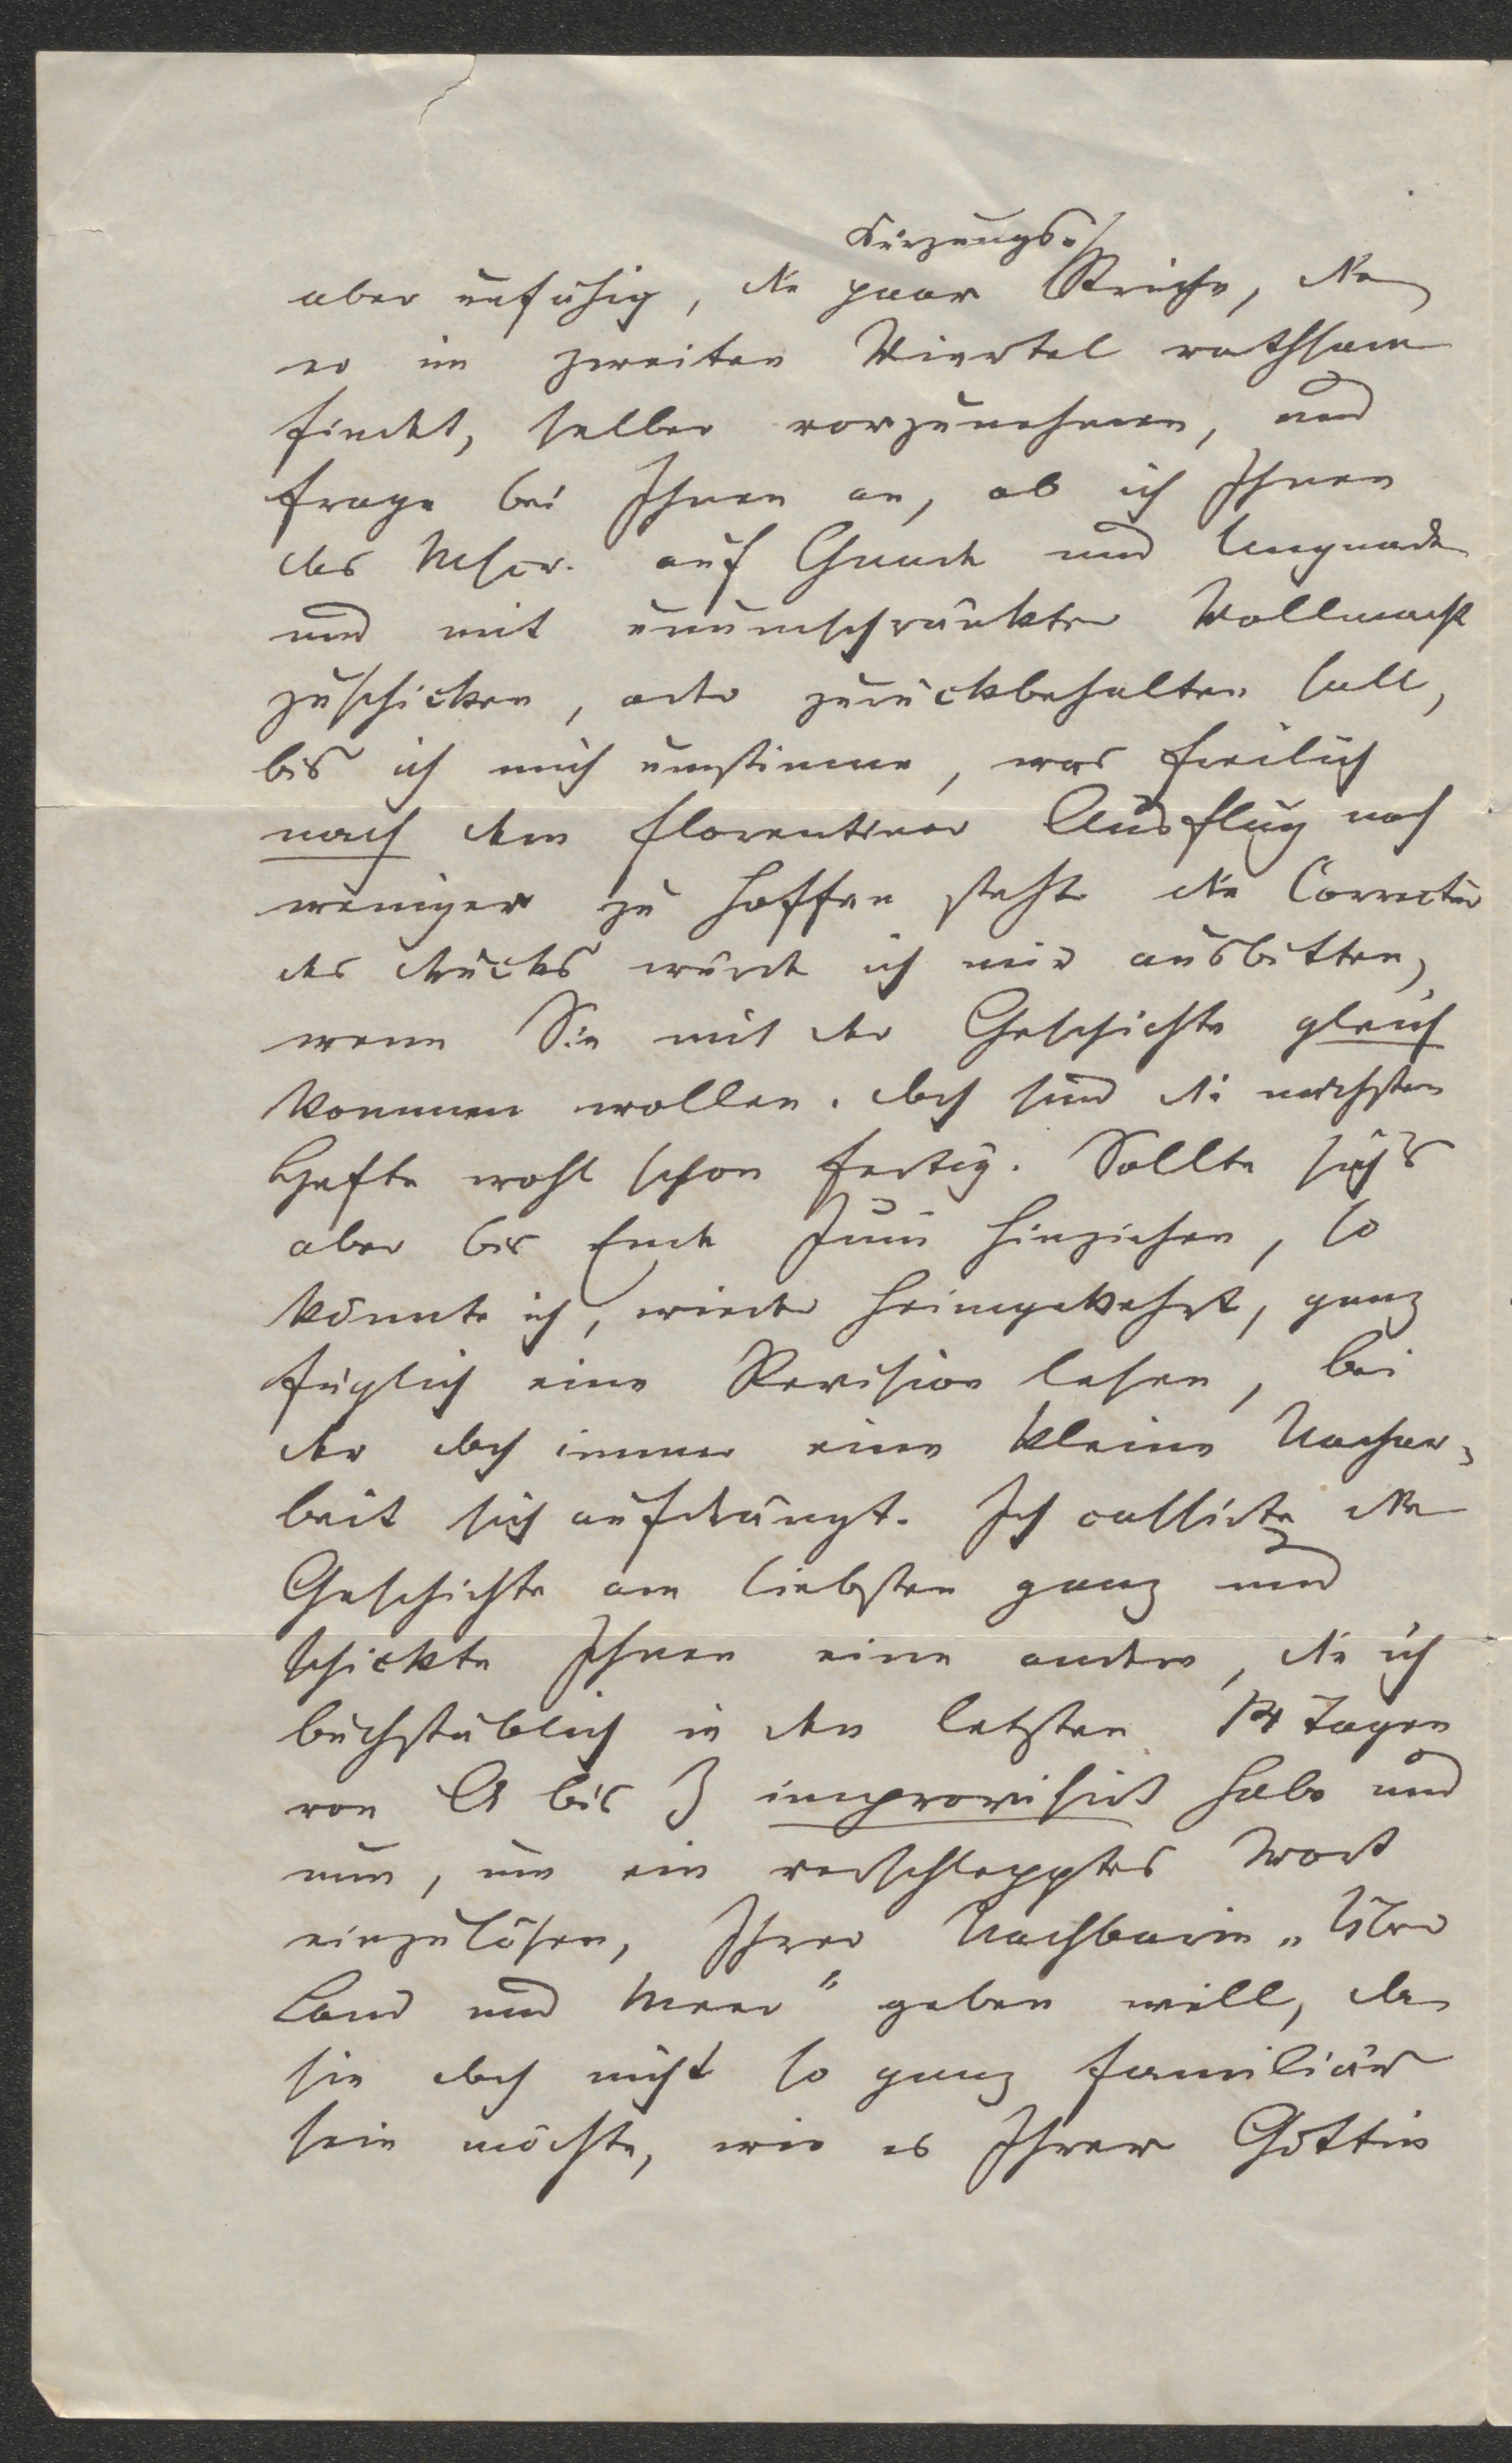 Kürzungs-/
aber unfähig, die paar Striche, die
er im zweiten Viertel rathsam
findet, selber vorzunehmen, und
frage bei Ihnen an, ob ich Ihnen
das Mscr. auf Gnade und Ungnade
und mit unumschränkter Vollmacht
zuschicken, oder zurückbehalten soll,
bis ich mich umstimme, was freilich
nach dem florentiner Ausflug noch
weniger zu hoffen steht. Die Correctur
des Drucks würde ich mir ausbitten,
wenn Sie mit der Geschichte gleich
kommen wollen. Doch sind die nächsten
Hefte wohl schon fertig. Sollte sich's
aber bis Ende Juni hinziehen, so
könnte ich, wieder heimgekehrt, ganz
füglich eine Revision lesen, bei
der doch immer eine kleine Nachar-
beit sich aufdrängt. Ich cassirte die
Geschichte am liebsten ganz und
schickte Ihnen eine andre, die ich
buchstäblich in den letzten 14 Tagen
von A bis Z improvisirt habe und
nun, um ein verschlepptes Wort
einzulösen, Ihrer Nachbarin „Über
Land und Meer" geben will, da
sie doch nicht so ganz familiär
sein möchte, wie es Ihrer Göttin